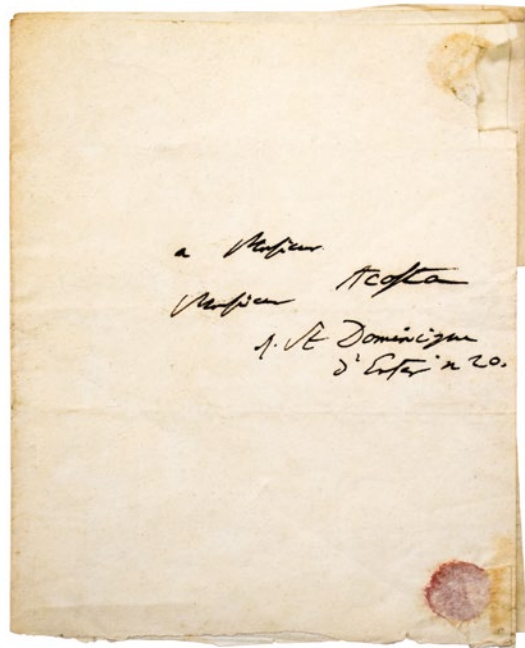 a Monsieur
Monsieur Acosta
r. St Dominique
d'Enfer n 20.